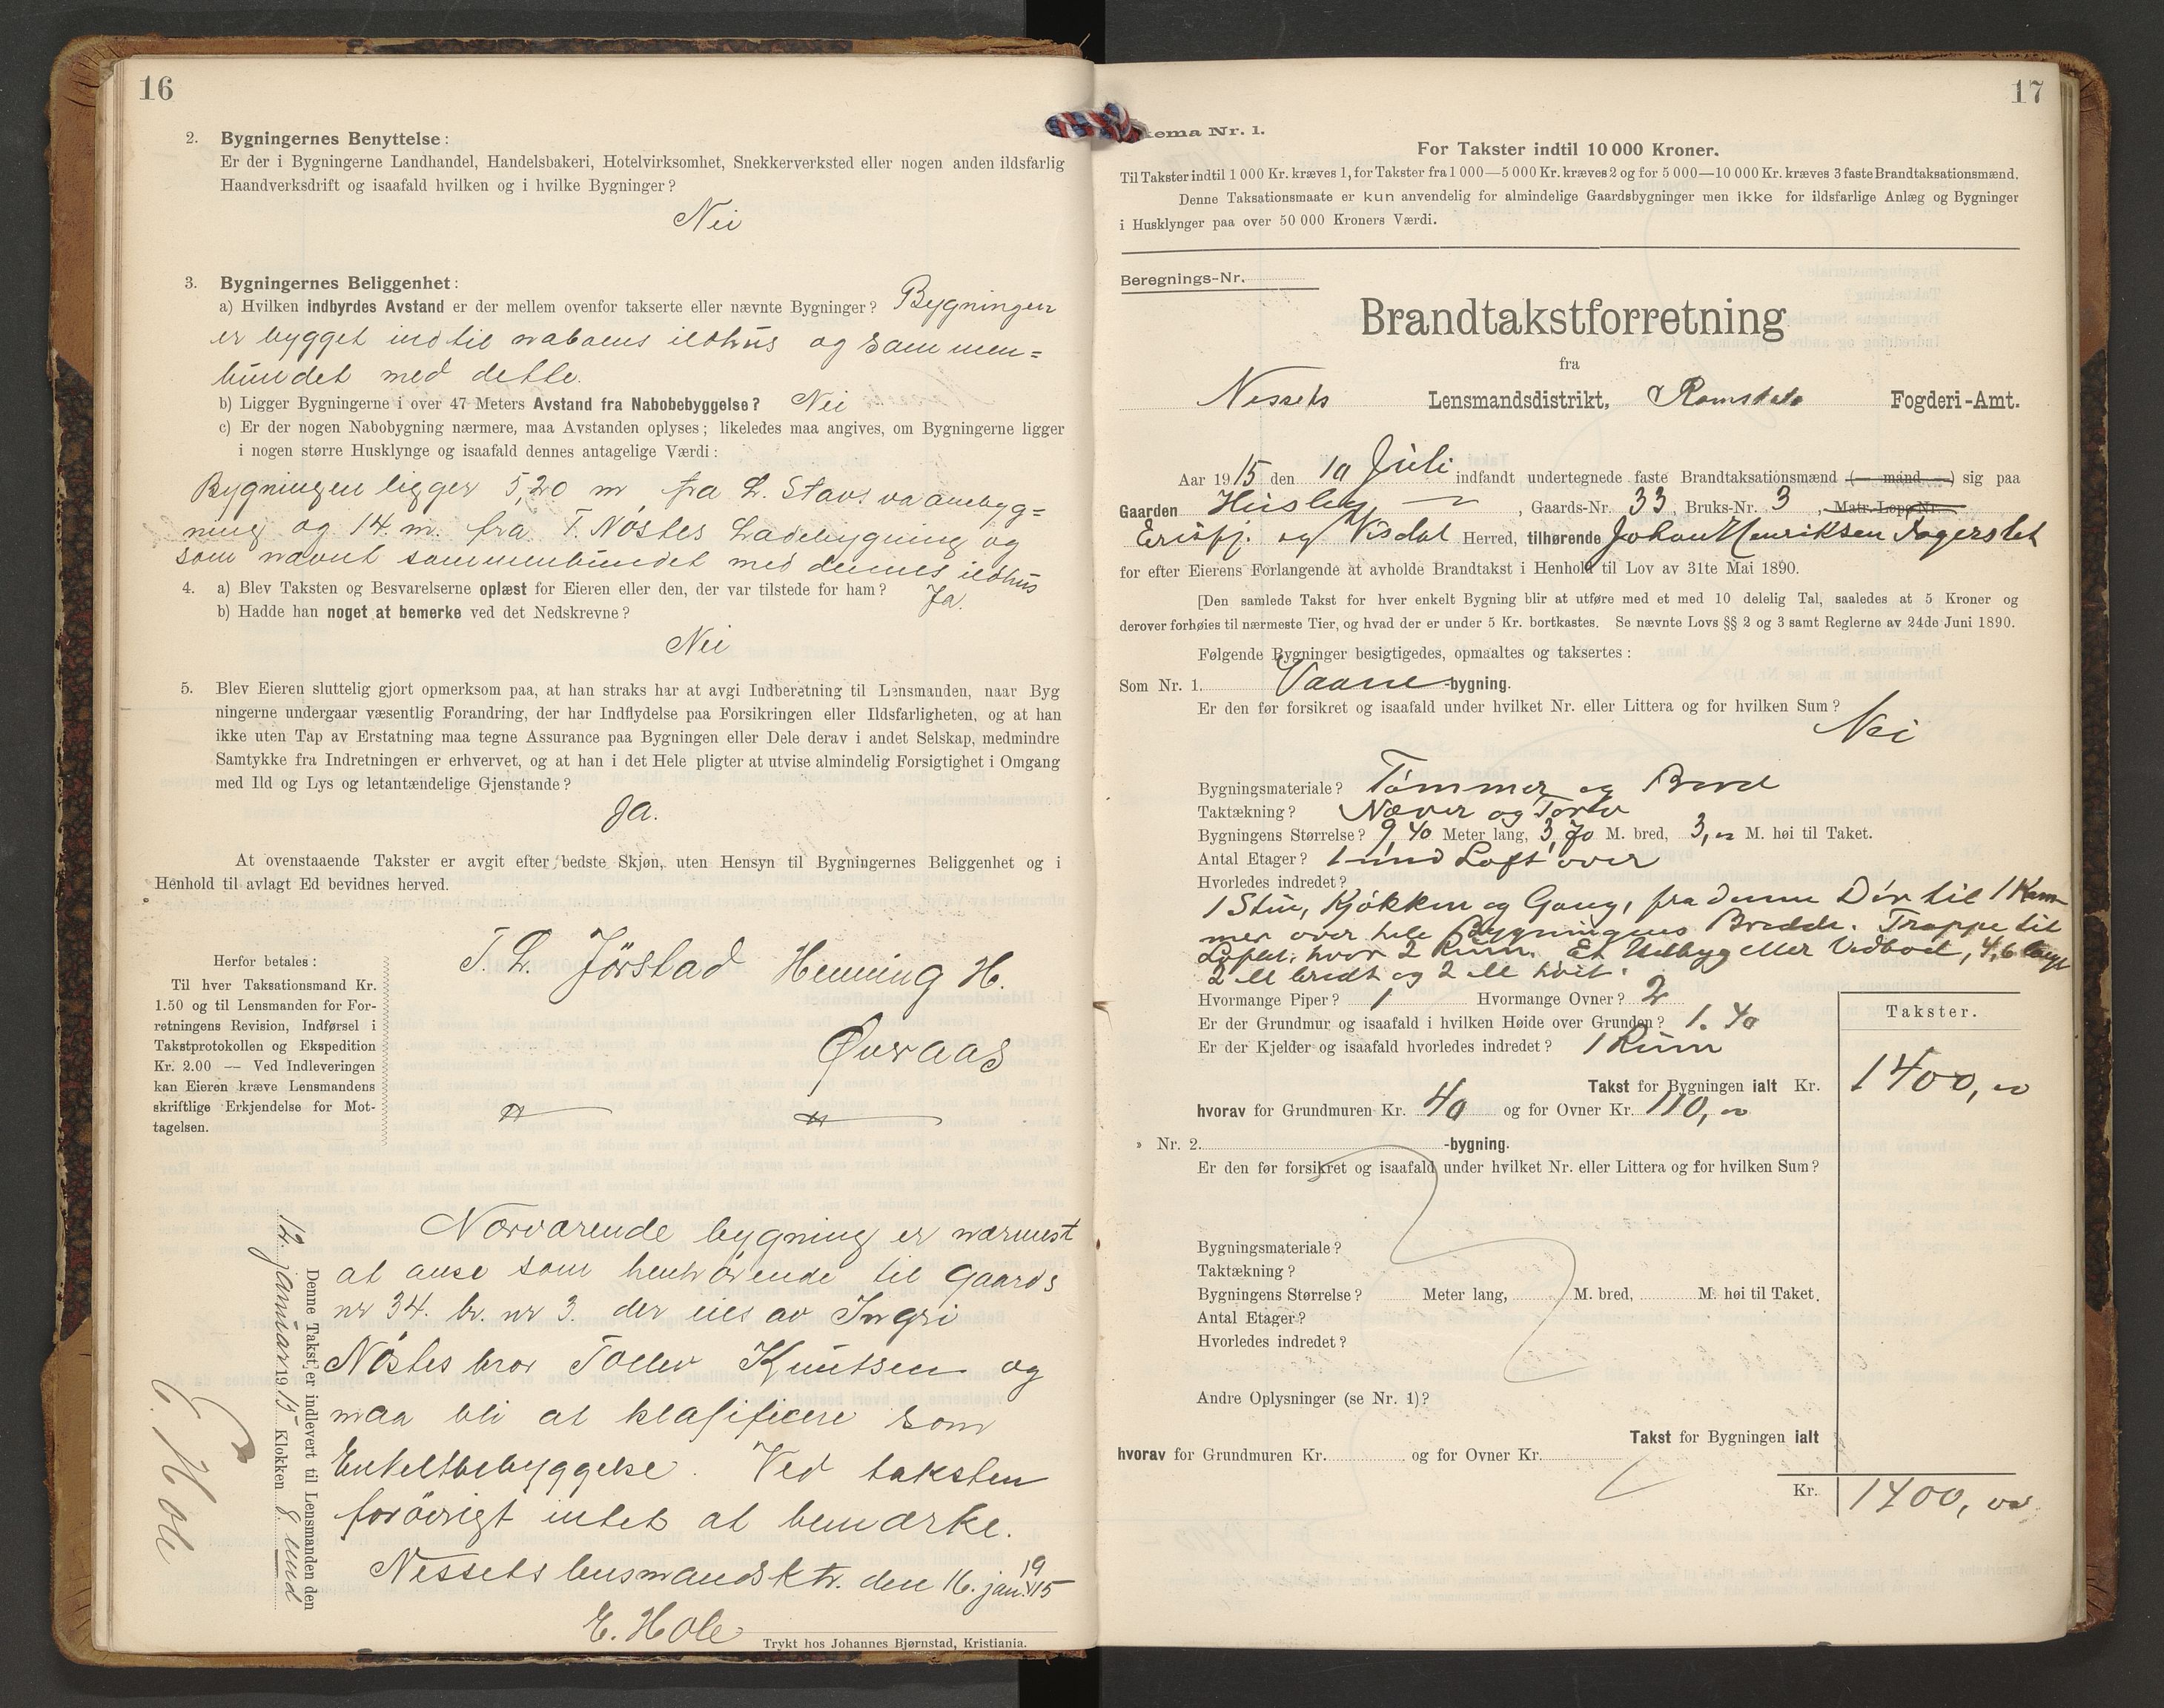 16
2. Bygningernes Benyttelse:
Er der i Bygningerne Landhandel, Handelsbakeri, Hotelvirksomhet, Snekkerverksted eller nogen anden ildsfarlig
Haandverksdrift og isaafald hvilken og i hvilke Bygninger?
Nei
3. Bygningernes Beliggenhet:
a) Hvilken indbyrdes Avstand er der mellem ovenfor takserte eller nævnte Bygninger? Bygningen
er bygget indtil naboens ildhus og sammen=
bundet med dette.
b) Ligger Bygningerne i over 47 Meters Avstand fra Nabobebyggelse? Nei
c) Er der nogen Nabobygning nærmere, maa Avstanden oplyses; likeledes maa angives, om Bygningerne ligger
i nogen større Husklynge og isaafald dennes antagelige Værdi:
Bygningen ligger 5,20 m fra L. Stavs vaanbyg=
ning og 14. m. fra T. Nøstes Ladebygning og
som nævnt sammenbundet med dennes ildhus
4. a) Blev Taksten og Besvarelserne oplæst for Eieren eller den, der var tilstede for ham? Ja.
b) Hadde han noget at bemerke ved det Nedskrevne?
Nei
5. Blev Eieren sluttelig gjort opmerksom paa, at han straks har at avgi Indberetning til Lensmanden, naar Byg
ningerne undergaar væsentlig Forandring, der har Indflydelse paa Forsikringen eller Ildsfarligheten, og at han
ikke uten Tap av Erstatning maa tegne Assurance paa Bygningen eller Dele derav i andet Selskap, medmindre
Samtykke fra Indretningen er erhvervet, og at han i det Hele pligter at utvise almindelig Forsigtighet i Omgang
med Ild og Lys og letantændelige Gjenstande?
Ja.
At ovenstaaende Takster er avgit efter bedste Skjøn, uten Hensyn til Bygningernes Beliggenhet og i
Henhold til avlagt Ed bevidnes herved.
Herfor betales:
Til hver Taksationsmand Kr.
1.50 og til Lensmanden for For-
retningens Revision, Indførsel i
Takstprotokollen og Ekspedition
Kr. 2.00 — Ved Indleveringen
kan Eieren kræve Lensmandens
skriftlige Erkjendelse for Mot-
tagelsen.
T. L. Jörstad Henning H.
Øveraas
Denne Takst er indlevert til Lensmanden den
12. januar 1915 Klokken 8 emd
E. Hole
Nærværende bygning er nærmest
at anse som henhörende til Gaards
nr 34. br. nr 3. der eies av Ingri
Nøstes bror Tollev Knutsen og
maa bli at klasificere som
Enkeltbebyggelse. Ved taksten
forövrigt intet at bemærke.
Nessets lensmandsktr. den 16. jan. 1915
E. Hole
Trykt hos Johannes Bjørnstad, Kristiania.
17
ema Nr. 1.
For Takster indtil 10 000 Kroner.
Til Takster indtil 1 000 Kr. kræves 1, for Takster fra 1 000—5 000 Kr. kræves 2 og for 5 000—10 000 Kr. kræves 3 faste Brandtaksationsmænd.
Denne Taksationsmaate er kun anvendelig for almindelige Gaardsbygninger men ikke for ildsfarlige Anlæg og Bygninger
i Husklynger paa over 50 000 Kroners Værdi.
Beregnings-Nr.
Brandtakstforretning
fra
Nessets Lensmandsdistrikt, Romsdals Fogderi-Amt.
Aar 1915 den 10 Juli indfandt undertegnede faste Brandtaksationsmænd (— mand —) sig paa
Gaarden Husby, Gaards-Nr. 33, Bruks-Nr. 3, Matr.-Løpe-Nr.
Erisfj. og Visdal Herred, tilhørende Johan Henriksen Fagerslet
for efter Eierens Forlangende at avholde Brandtakst i Henhold til Lov av 31te Mai 1890.
[Den samlede Takst for hver enkelt Bygning blir at utføre med et med 10 delelig Tal, saaledes at 5 Kroner og
derover forhøies til nærmeste Tier, og hvad der er under 5 Kr. bortkastes. Se nævnte Lovs §§ 2 og 3 samt Reglerne av 24de Juni 1890.
Følgende Bygninger besigtigedes, opmaaltes og taksertes:
Som Nr. 1. Vaane-bygning.
Er den før forsikret og isaafald under hvilket Nr. eller Littera og for hvilken Sum?
Nei
Bygningsmateriale? Tömmer og Bord
Taktækning? Næver og Torv
Bygningens Størrelse? 9,40 Meter lang, 3,70 M. bred, 3,00 M. høi til Taket.
Antal Etager? 1 med Loft over
Hvorledes indredet?
1 Stue, Kjøkken og Gang, fra denne Dör til 1 Kam-
mer over hele Bygningens Bredde. Trappe til
Loftet, hvor 2 Rum. Et Udbyg eller Vedbod, 4,6 langt
2 m bredt og 2 m höit.
Hvormange Piper? 1 Hvormange Ovner? 2
Er der Grundmur og isaafald i hvilken Høide over Grunden? 1.40
Er der Kjelder og isaafald hvorledes indredet? 1 Rum
Takster.
Takst for Bygningen ialt Kr. 1400,00
hvorav for Grundmuren Kr. 40 og for Ovner Kr. 110,00
» Nr. 2. -bygning.
Er den før forsikret og isaafald under hvilket Nr. eller Littera og for hvilken Sum?
Bygningsmateriale?
Taktækning?
Bygningens Størrelse? Meter lang, M. bred, M. høi til Taket.
Antal Etager?
Hvorledes indredet?
Andre Oplysninger (se Nr. 1)?
Takst for Bygningen ialt
hvorav for Grundmuren Kr. og for Ovner Kr.
Kr. 1400,00